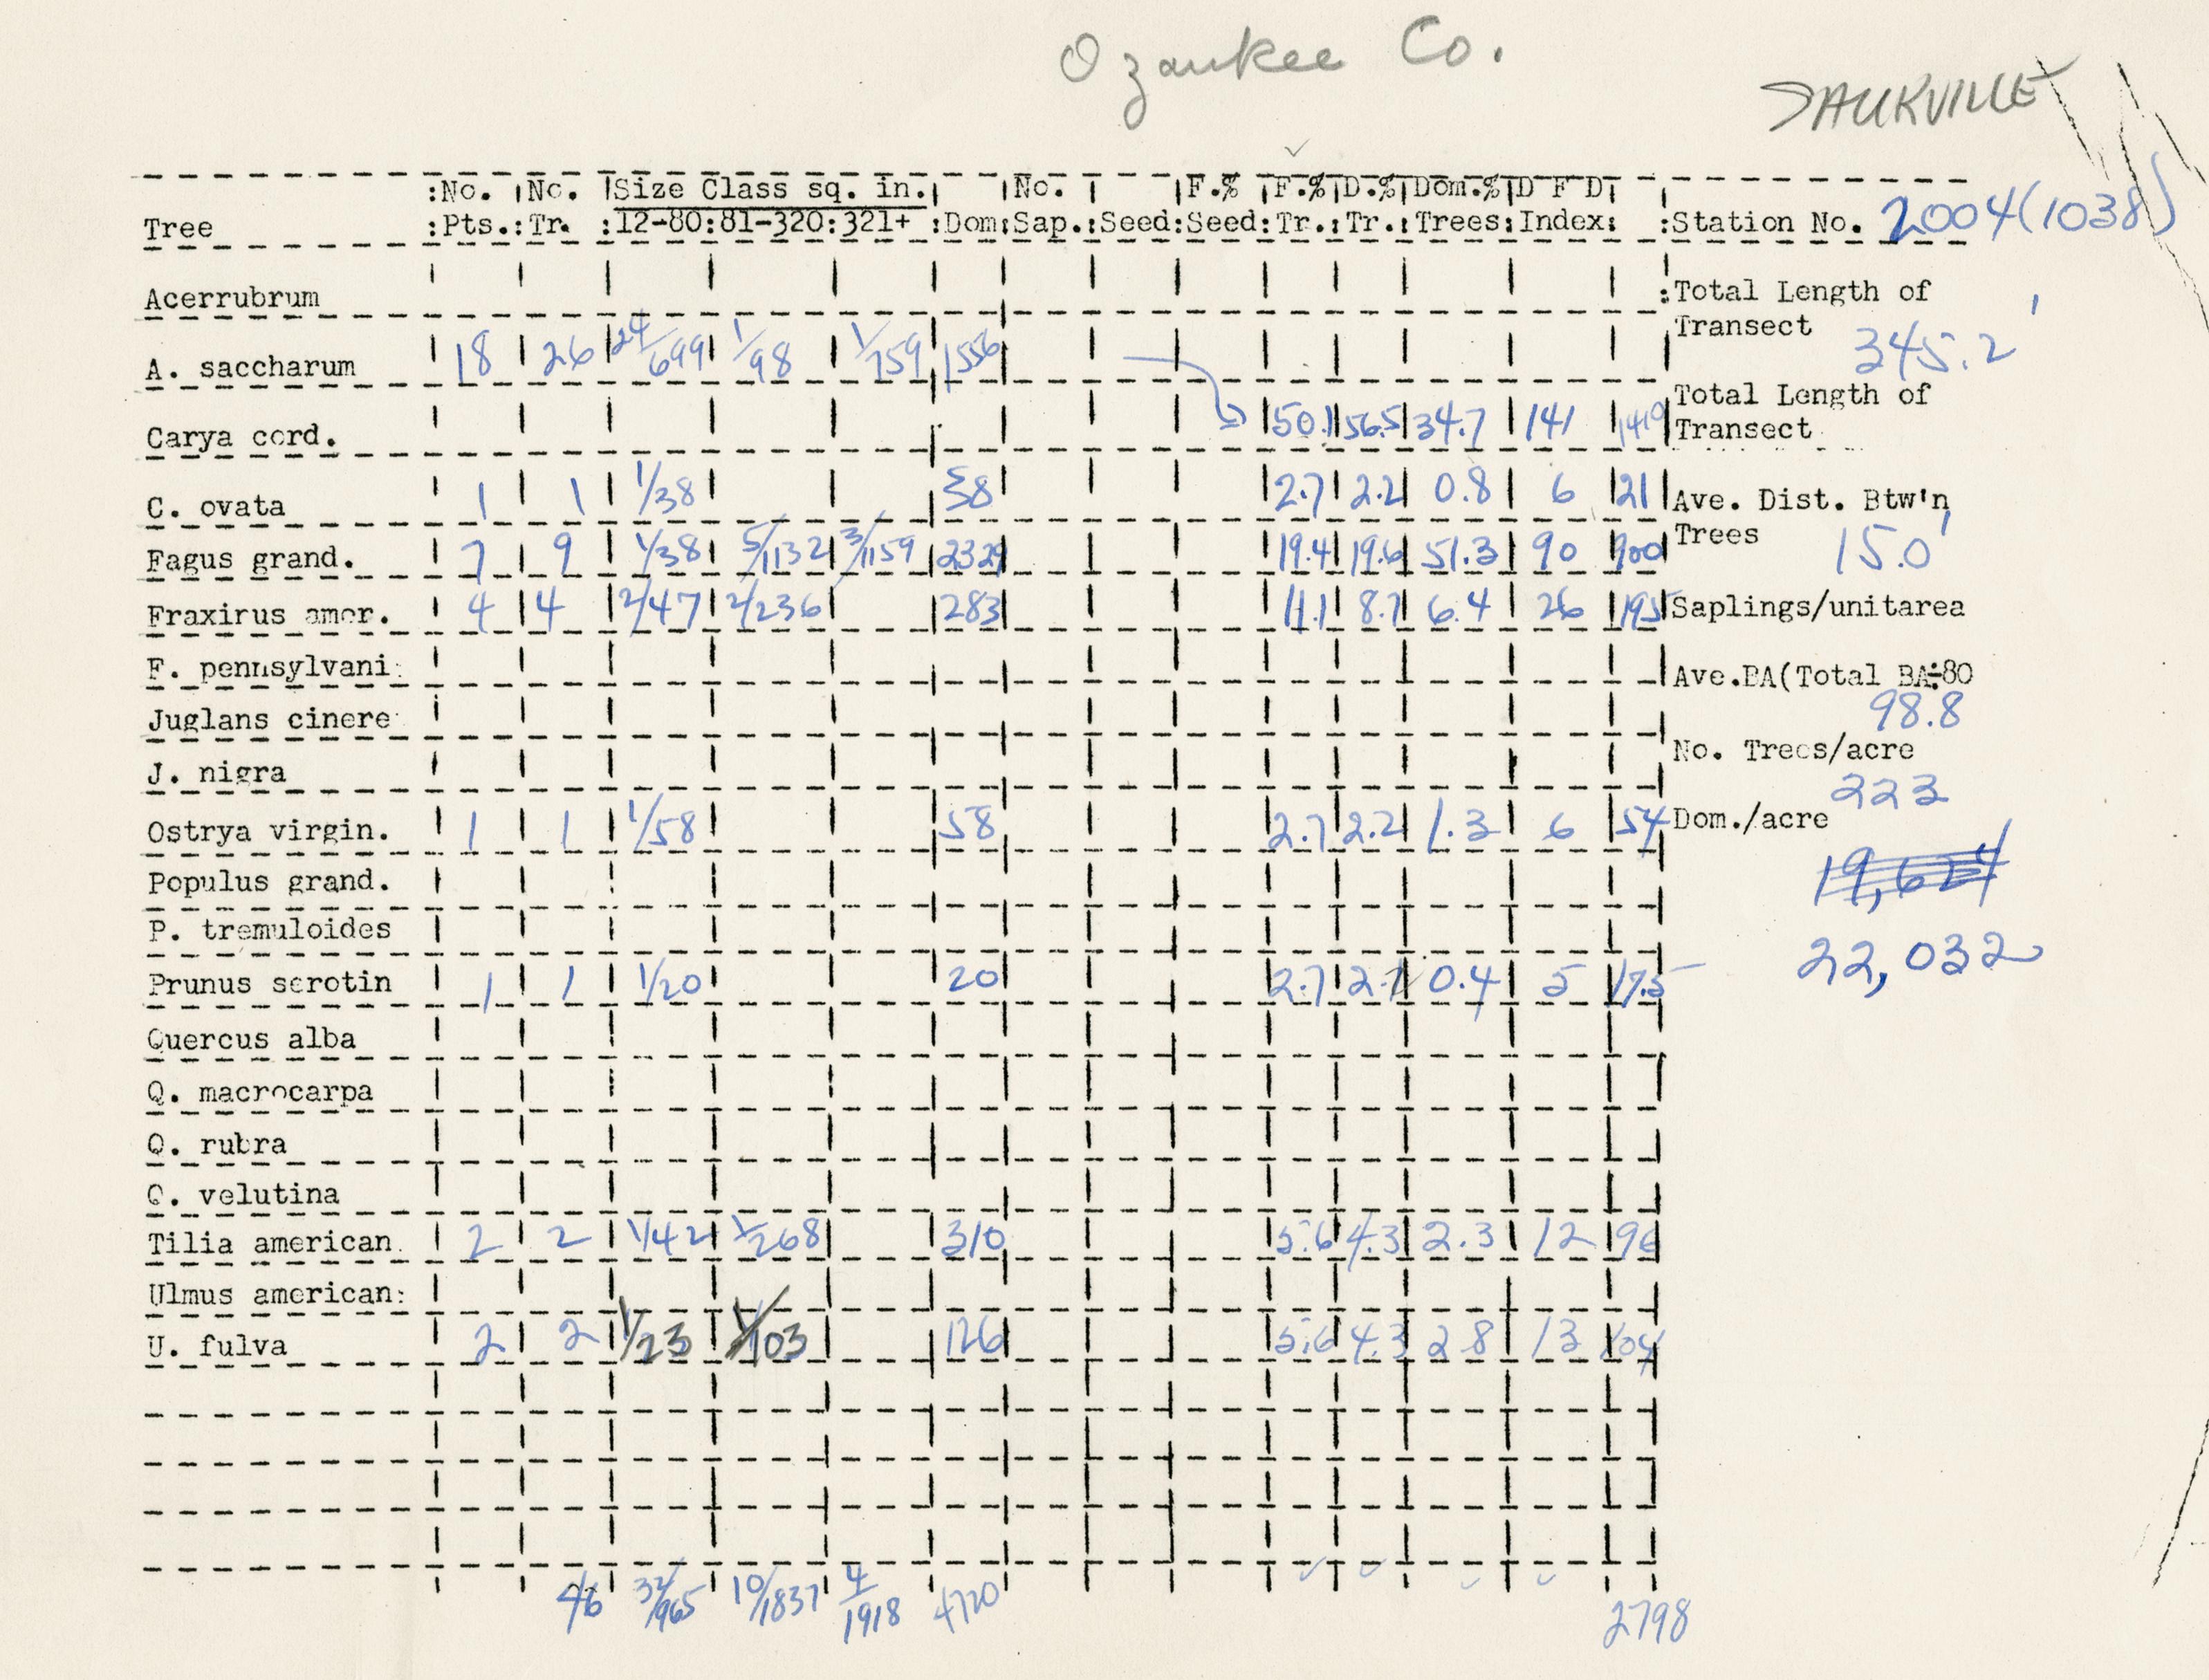 Ozaukee Co.
SAUKVILLE
:No. No. Size Class sq. in. No. F.% F.% D.% Dom.% D F D
Tree :Pts.:Tr. :12-80:81-320:321+ :Dom:Sap.:Seed:Seed:Tr.:Tr.:Trees:Index: :Station No. 2004(1038)
Acerrubrum :Total Length of
Transect 345.2'
A. saccharum 18 26 24/699 1/98 1/759 1556
Total Length of
Carya cord. 50.1 56.5 34.7 141 1410 Transect
C. ovata 1 1 1/38 38 2.7 2.2 0.8 6 21 Ave. Dist. Btw'n
Trees 15.0'
Fagus grand. 7 9 1/38 5/1132 3/1159 2329 19.4 19.6 51.3 90 900
Fraxirus amer. 4 4 2/47 2/236 283 11.1 8.7 6.4 26 195 Saplings/unitarea
F. pennsylvani: Ave.BA(Total BA÷80
98.8
Juglans cinere
No. Trees/acre
J. nigra 223
Ostrya virgin. 1 1 1/58 58 2.7 2.2 1.3 6 54 Dom./acre
Populus grand. 19,624
P. tremuloides 22,032
Prunus serotin 1 1 1/20 20 2.7 2.2 0.4 5 17.5
Quercus alba
Q. macrocarpa
Q. rubra
Q. velutina
Tilia american. 2 2 1/42 1/268 310 5.6 4.3 2.3 12 96
Ulmus american:
U. fulva 2 2 1/23 1/103 126 5.6 4.3 2.8 13 104
46 32/965 10/1837 4/1918 4720 2798